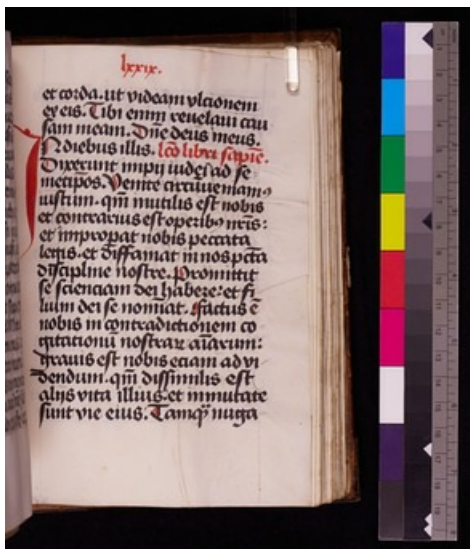 lxxix.
et corda. ut videam ultionem
ex eis. Tibi enim revelavi cau
sam meam. Dñe deus meus.
In diebus illis. lcõ libri sapiẽ.
Dixerunt impii iudei ad se
metipsos. Venite circumveniamꝰ
iustum. qm̃ inutilis est nobis
et contrarius est operibꝰ nr̃is:
et improperat nobis peccata
legis. et diffamat in nos pctã
discipline nostre. Promittit
se scienciam dei habere: et fi
lium dei se nominat. Factus ẽ
nobis in contradictionem co
gitationũ nostraꝝ aĩarum:
Gravis est nobis eciam ad vi
dendum. qm̃ dissimilis est
aliis vita illius. et immutate
sunt vie eius. Tamqꝫ nuga